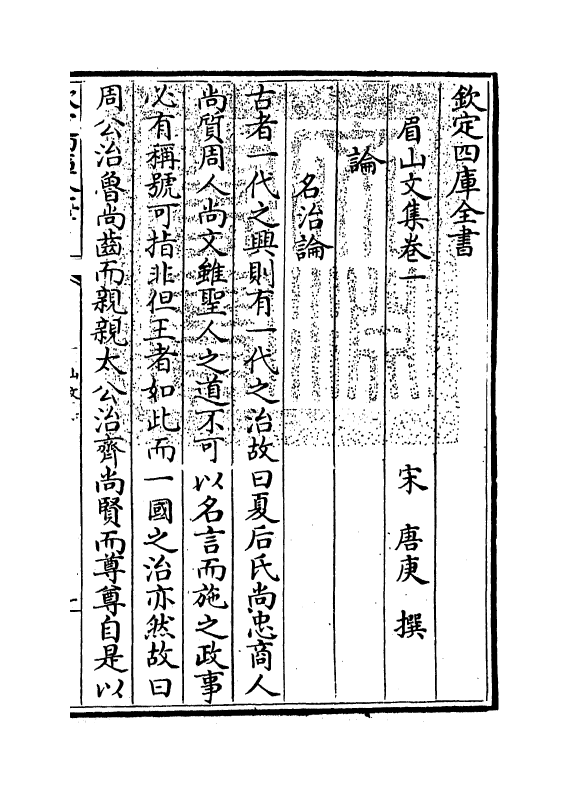 欽定四庫全書
眉山文集卷一
宋 唐庚 撰
論
名治論
古者一代之興則有一代之治故曰夏后氏尚忠商人
尚質周人尚文雖聖人之道不可以名言而施之政事
必有稱號可指非但王者如此而一國之治亦然故曰
周公治魯尚齒而親親太公治齊尚賢而尊尊自是以